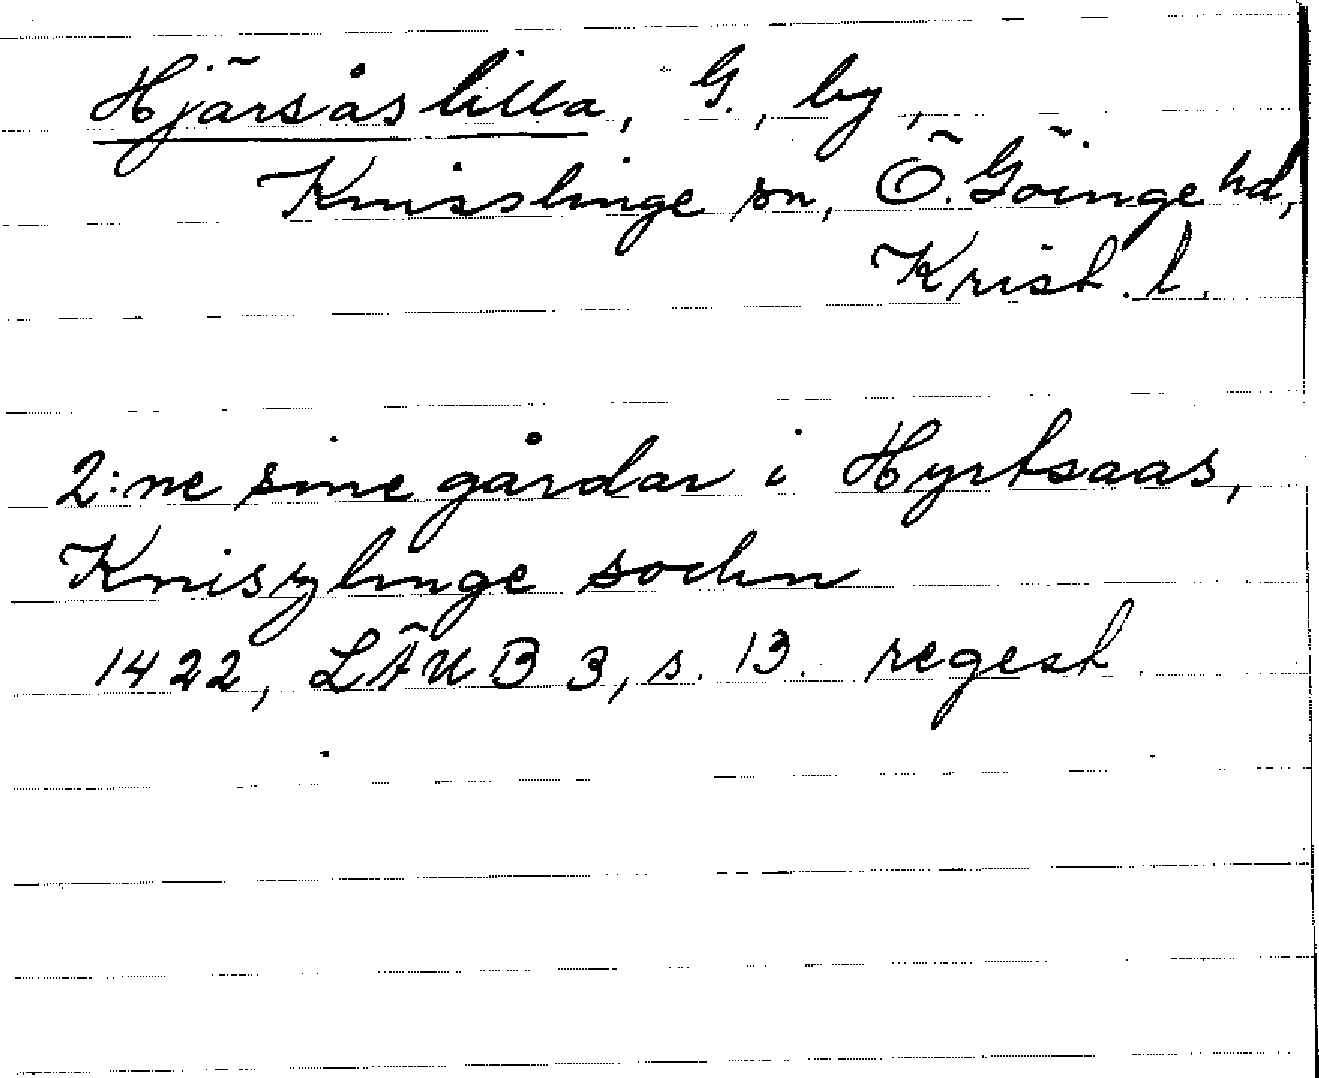 Hjärsåslilla, G., by,
Knisslinge sn, Ö. Göinge hd,
Krist. l.
2:ne sine gårdar i Hyrtsaas,
Kniszlinge sochn
1422, LÄUB 3, s. 13. regest